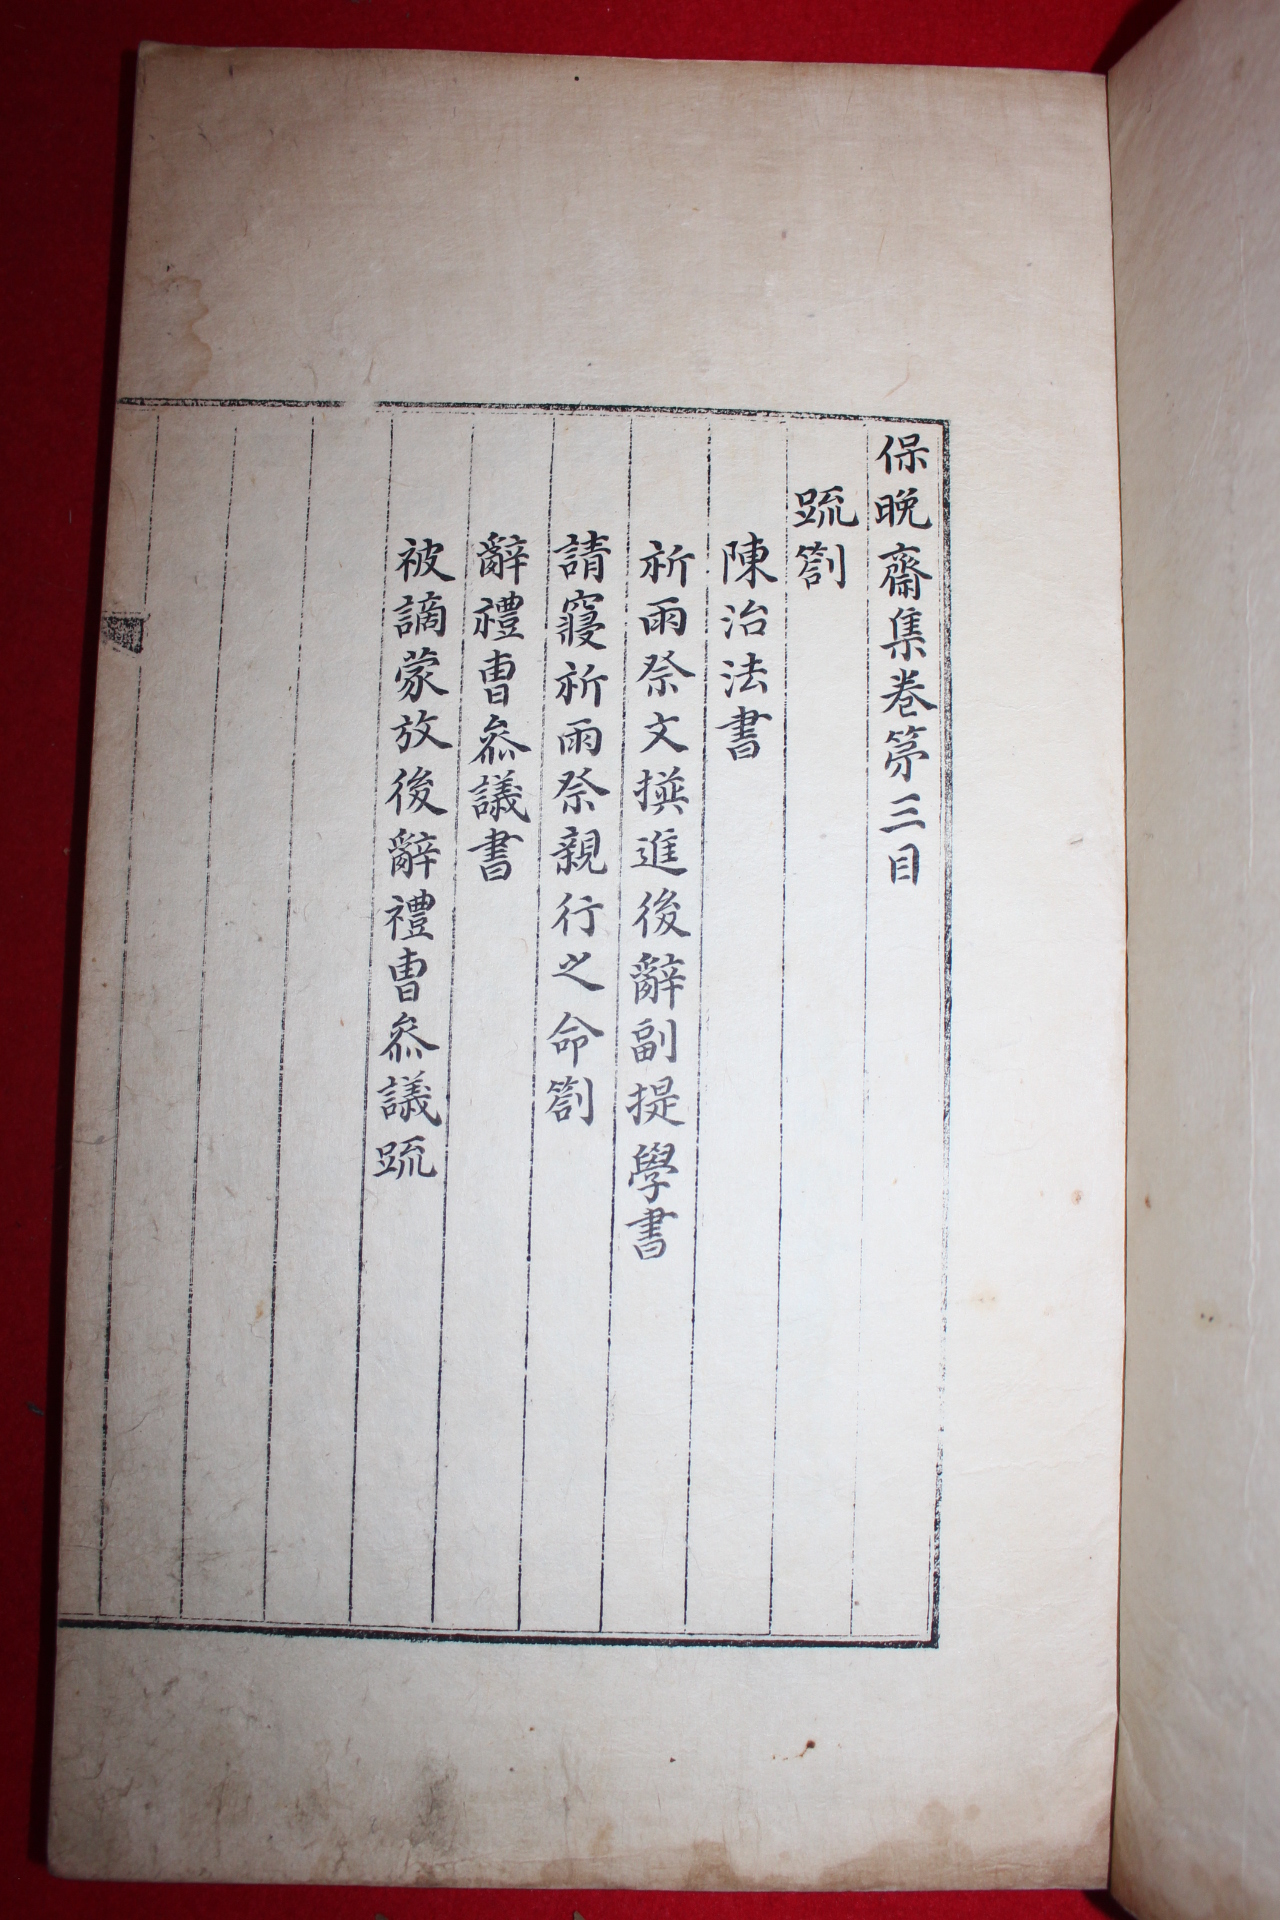 保晚齋集卷第三目
疏劄
陳治法書
祈雨祭文撰進後辭副提學書
請寢祈雨祭親行之命劄
辭禮曹叅議書
被謫蒙放後辭禮曹叅議疏